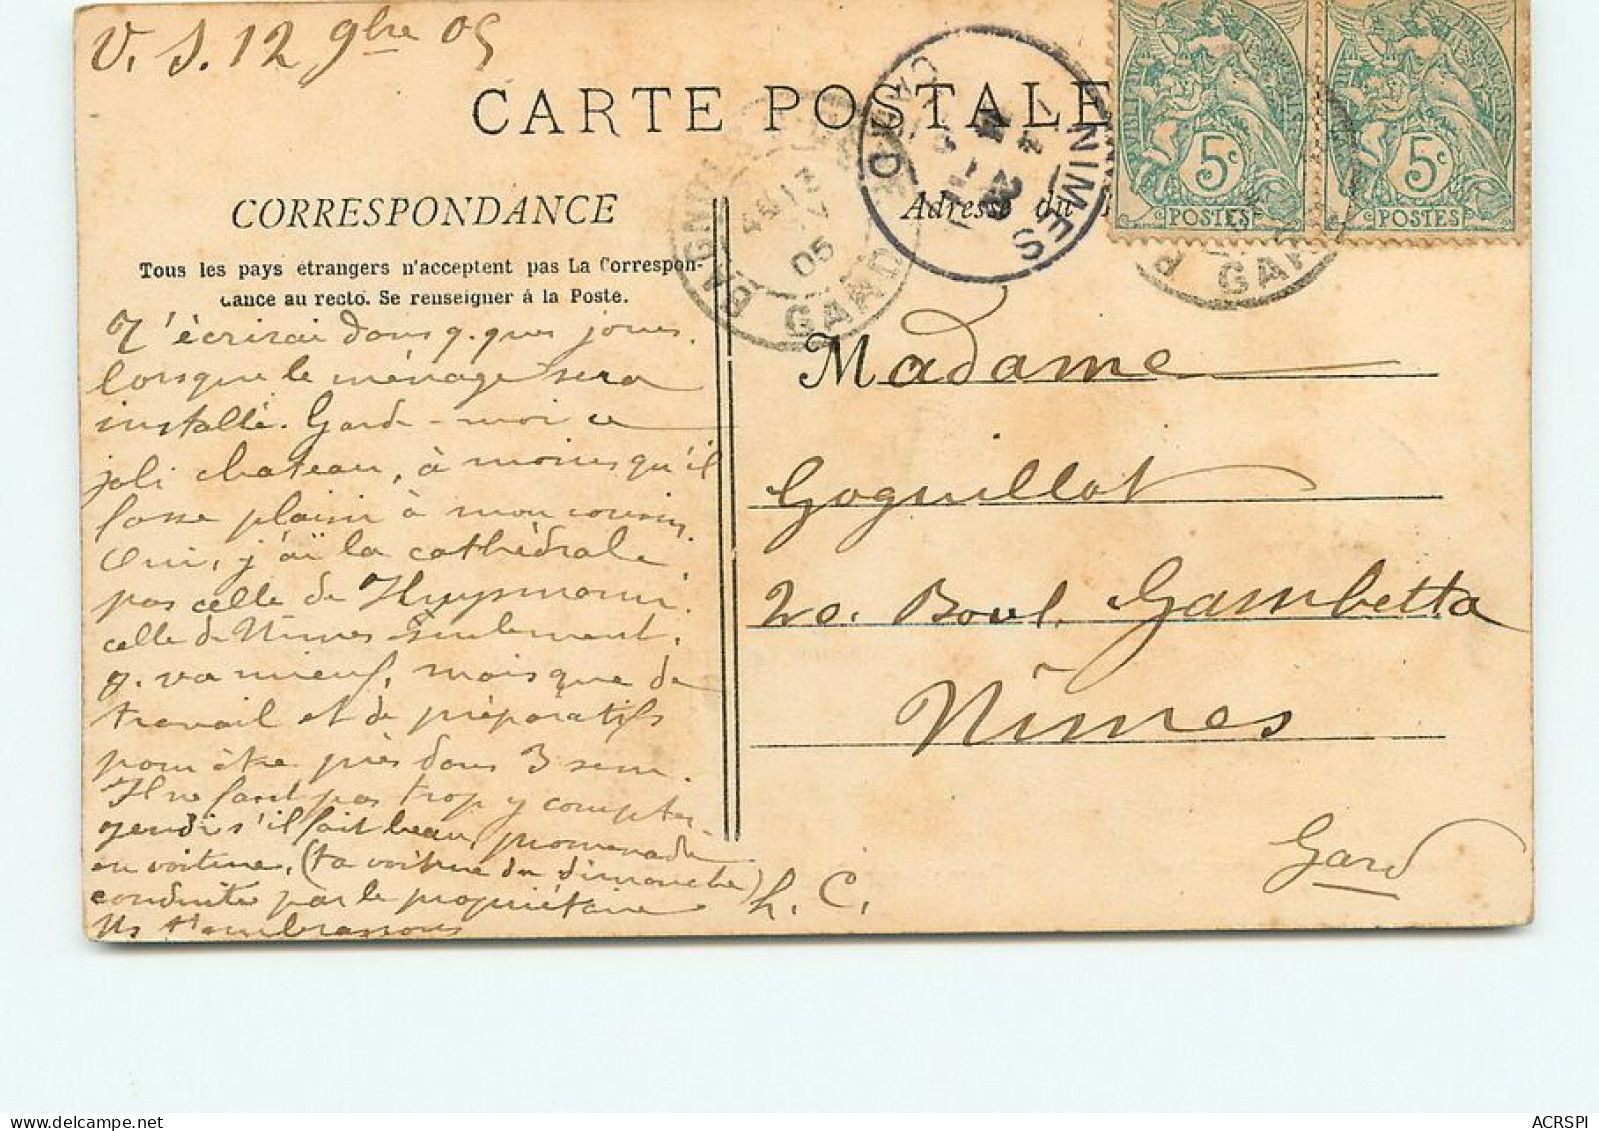 V. S. 12 9bre 05
CARTE POSTALE
CORRESPONDANCE
Tous les pays étrangers n'acceptent pas La Correspon-
dance au recto. Se renseigner à la Poste.
T'écrirai dans q.ques jours
lorsque le ménage sera
installé. Garde-moi ce
joli chateau, à moins qu'il
fasse plaisir à mon cousin.
Oui, j'ai la cathédrale
pas celle de Huysmann.
celle de Nîmes seulement.
g. va mieux, mais que de
travail et de préparatifs
pour être près dans 3 sem.
Il ne faut pas trop y compter.
Jendi s'il fait beau, promenade
en voiture, (ta voiture du dimanche)
conduite par le propriétaire
Ns t'embrassons L. C.
Adresse du
Madame
Goguillot
20. Boul. Gambetta
Nîmes
Gard
5c
POSTES
5c
POSTES
13
05
GARD
NIMES
GARD
GARD
ACRSPI